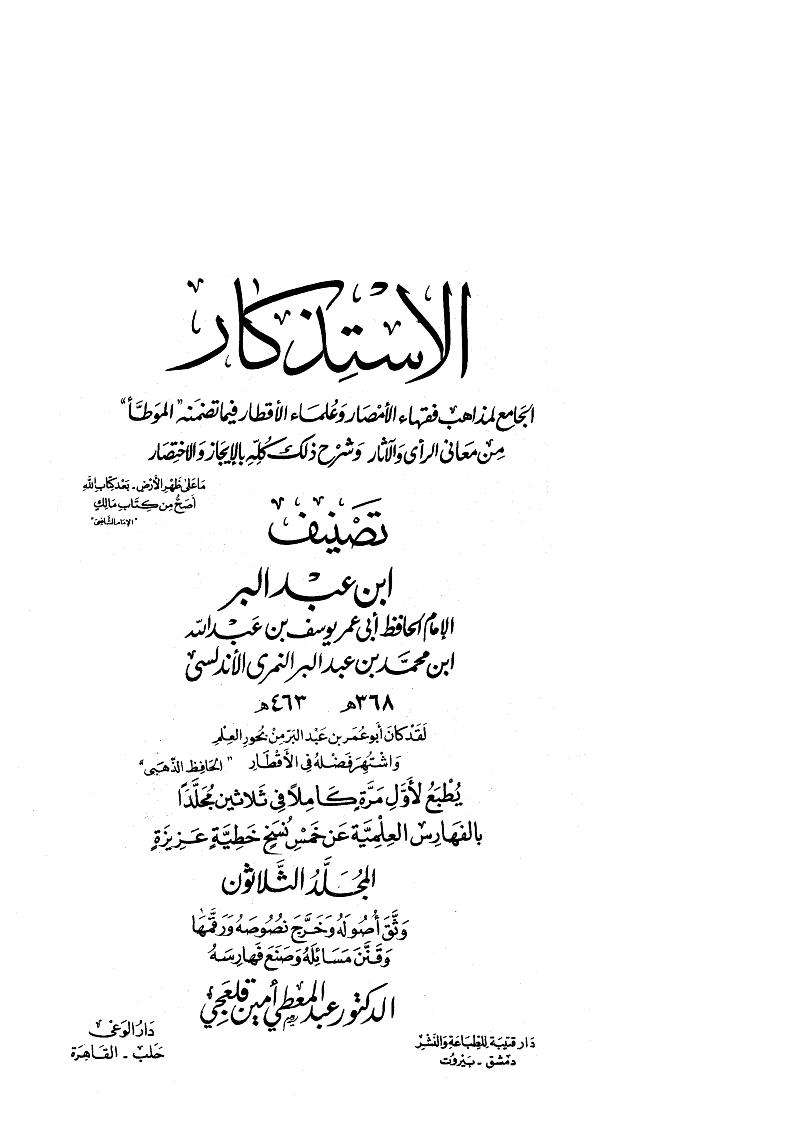 الاستذكار
الجامع لمذاهب فقهاء الأمصار وعلماء الأقطار فيما تضمنه "الموطأ"
من معاني الرأى والآثار وشرح ذلك كله بالإيجاز والاختصار
ما على ظهر الأرض - بعد كتاب الله
أصح من كتاب مالك
"الإمام الشافعي"
تصنيف
ابن عبد البر
الإمام الحافظ أبي عمر يوسف بن عبد الله
ابن محمد بن عبد البر النمرى الأندلسى
٣٦٨هـ ٤٦٣هـ
لقد كان أبو عمر بن عبد البر من بحور العلم
واشتهر فضله في الأقطار "الحافظ الذهبى"
يُطبع لأوّل مرّة كاملاً في ثلاثين مُجلّدًا
بالفهارس العلميّة عن خمس نُسخ خطيّة عزيزة
المجلّدُ الثّلاثون
وثّق أصُوله وخرّج نصُوصه ورقّمها
وقنّن مسَائله وصنع فهارسهُ
الدكتور عبد المعطي أمين قلعجي
دار قتيبة للطباعة والنشر
دمشق - بيروت
دار الوعى
حلب - القاهرة